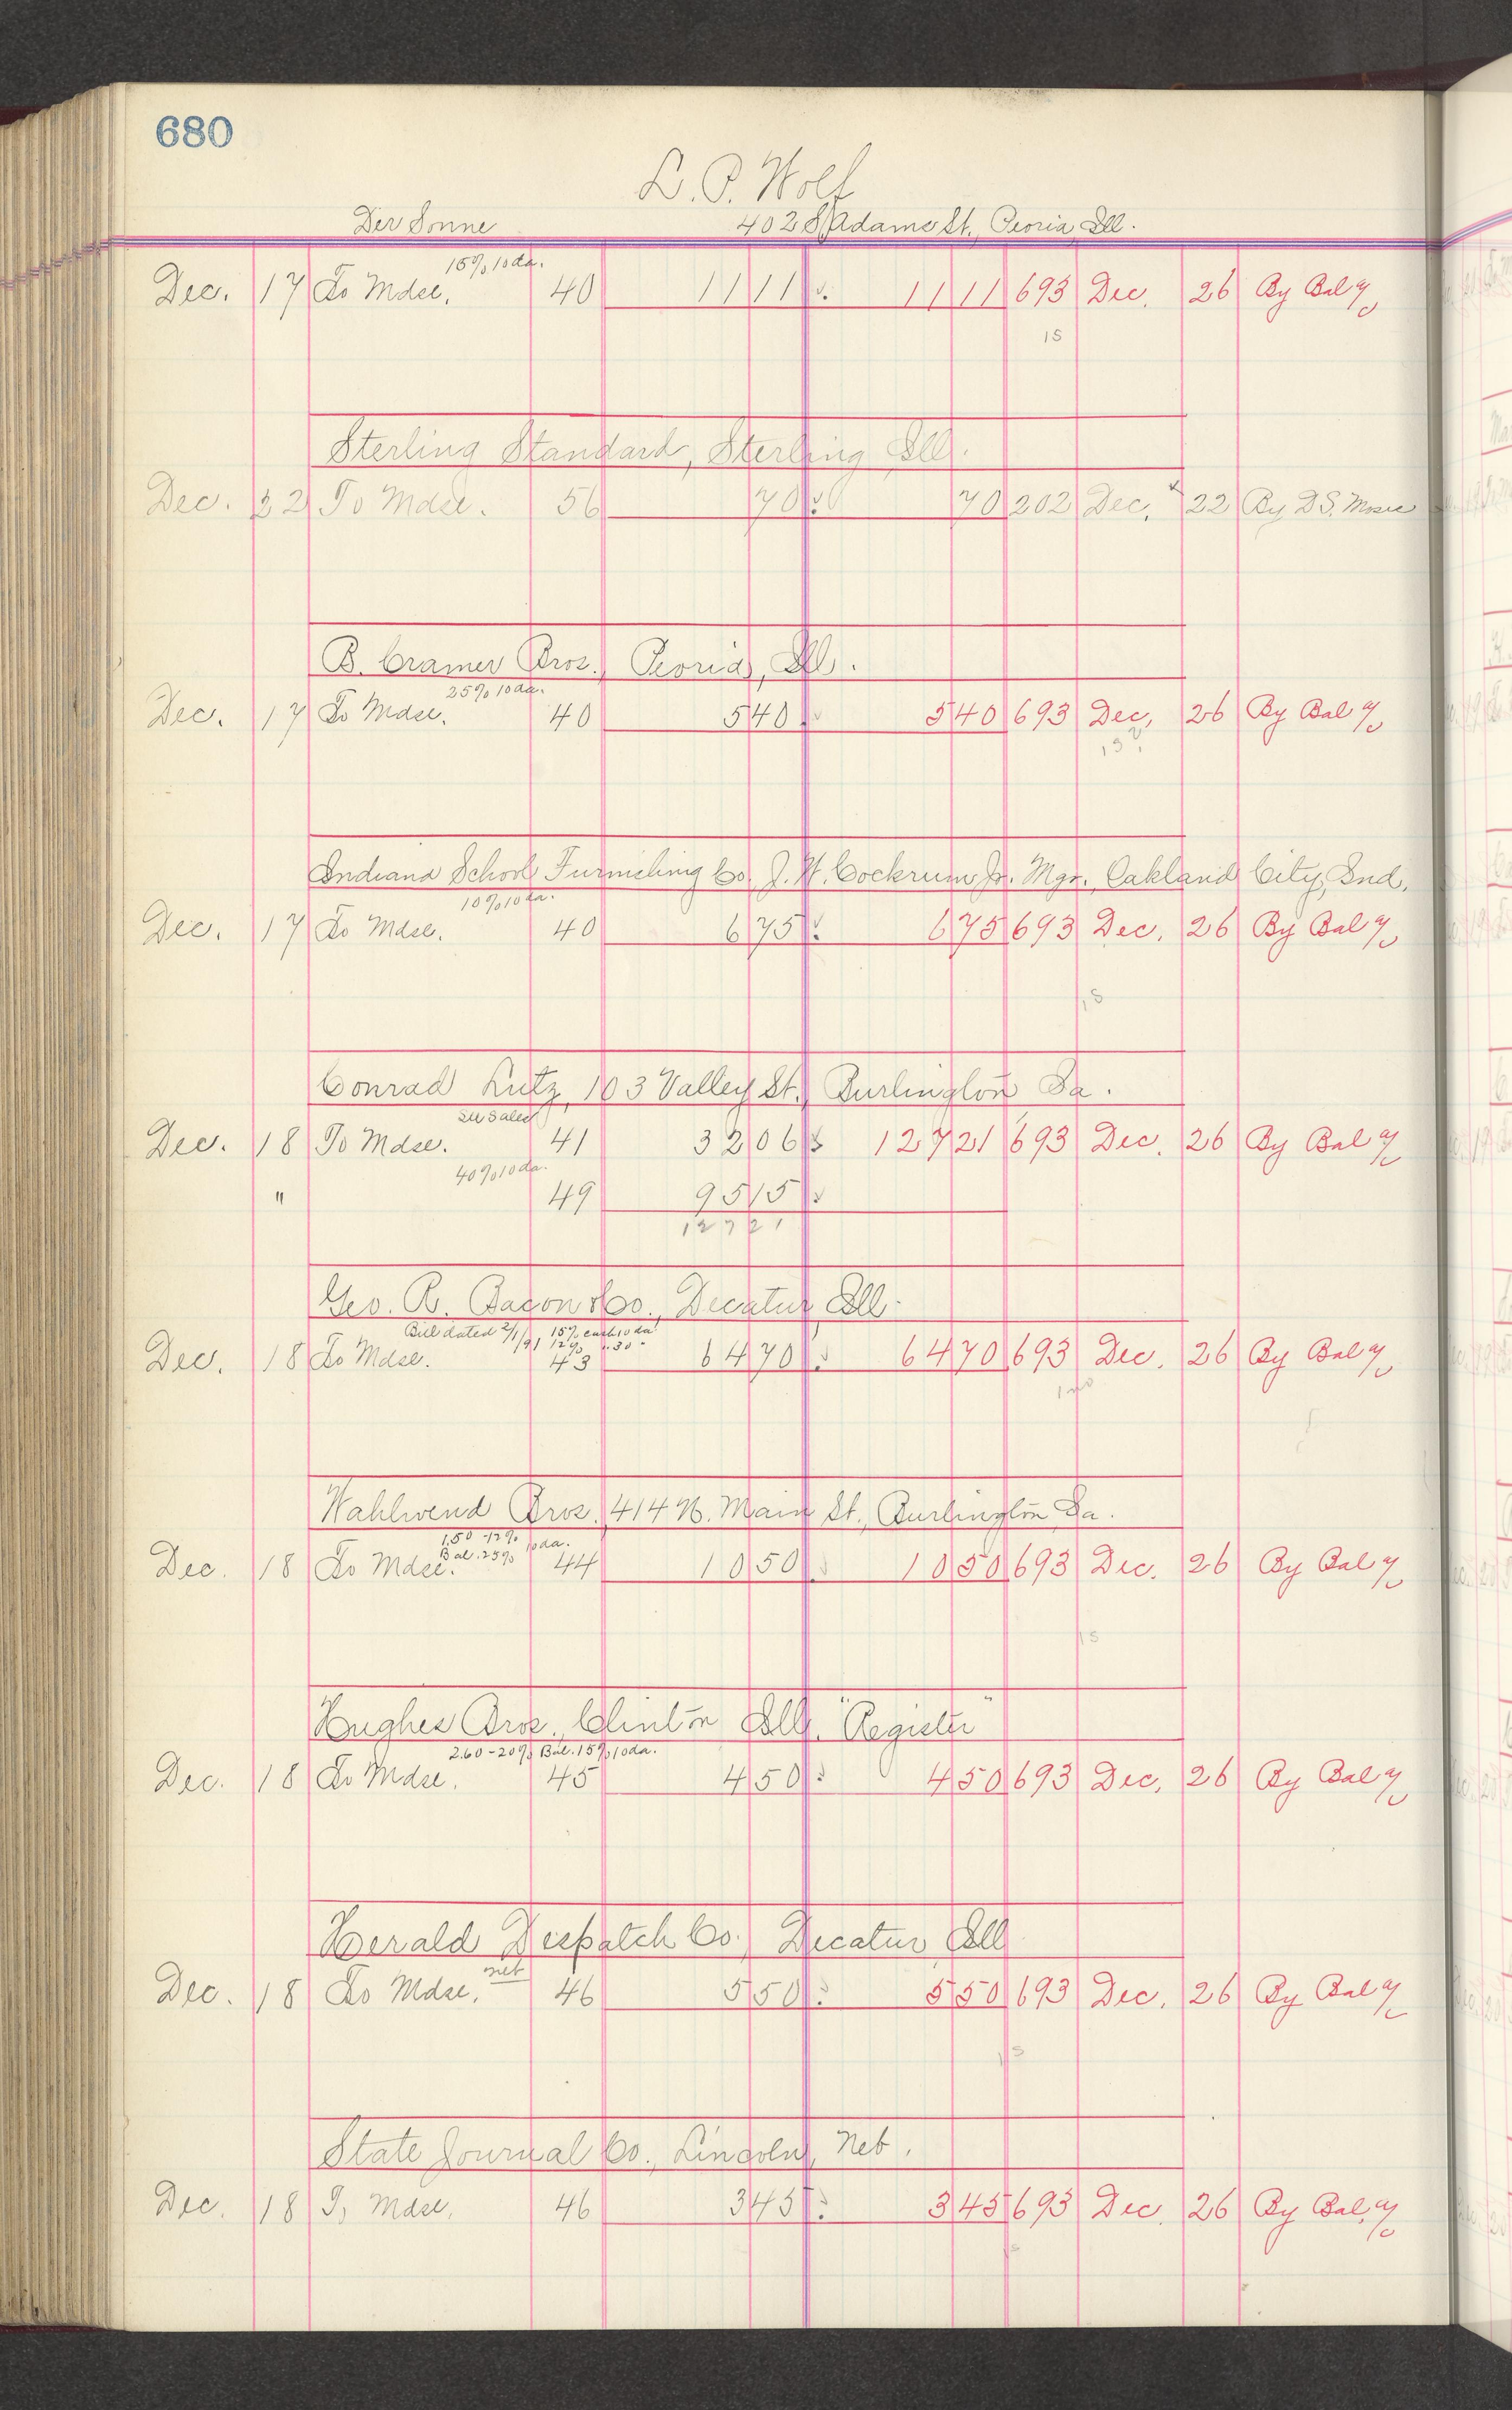 680
L. P. Wolf
Der Sonne 402 S Adams St., Peoria Ill.
15% 10 da.
Dec. 17 To Mdse. 40 11 11 11 11 693 Dec. 26 By Bal %
15
Sterling Standard, Sterling Ill.
Dec. 22 To Mdse. 56 70 70 202 Dec. 22 By D.S.
B. Cramer Bros., Peoria, Ill.
25% 10 da.
Dec. 17 To Mdse. 40 5 40 5 40 693 Dec. 26 By Bal %
Indiana School Furnishing Co. J. W. Cockrum Jr. Mgr., Oakland City, Ind.
10% 10 da.
Dec. 17 To Mdse. 40 6 75 6 75 693 Dec. 26 By Bal %
15
Conrad Lutz, 103 Valley St., Burlington Ia.
See Sales
Dec. 18 To Mdse. 41 32 06 127 21 693 Dec. 26 By Bal %
40% 10 da.
" 49 95 15
127 21
Geo. R. Bacon & Co., Decatur Ill.
Bill dated 2/1/91 15% cash 10 da.
12% " 30 "
Dec. 18 To Mdse. 43 64 70 64 70 693 Dec. 26 By Bal %
Wahlwend Bros. 414 N. Main St., Burlington Ia.
1.50 - 12%
Bal. 25% 10 da.
Dec. 18 To Mdse. 44 10 50 10 50 693 Dec. 26 By Bal %
15
Hughes Bros., Clinton Ill. "Register"
2.60 - 20% Bal. 15% 10 da.
Dec. 18 To Mdse. 45 4 50 4 50 693 Dec. 26 By Bal %
Herald Despatch Co., Decatur Ill
net
Dec. 18 To Mdse. 46 5 50 5 50 693 Dec. 26 By Bal %
15
State Journal Co., Lincoln, Neb.
Dec. 18 To Mdse. 46 3 45 3 45 693 Dec. 26 By Bal. %